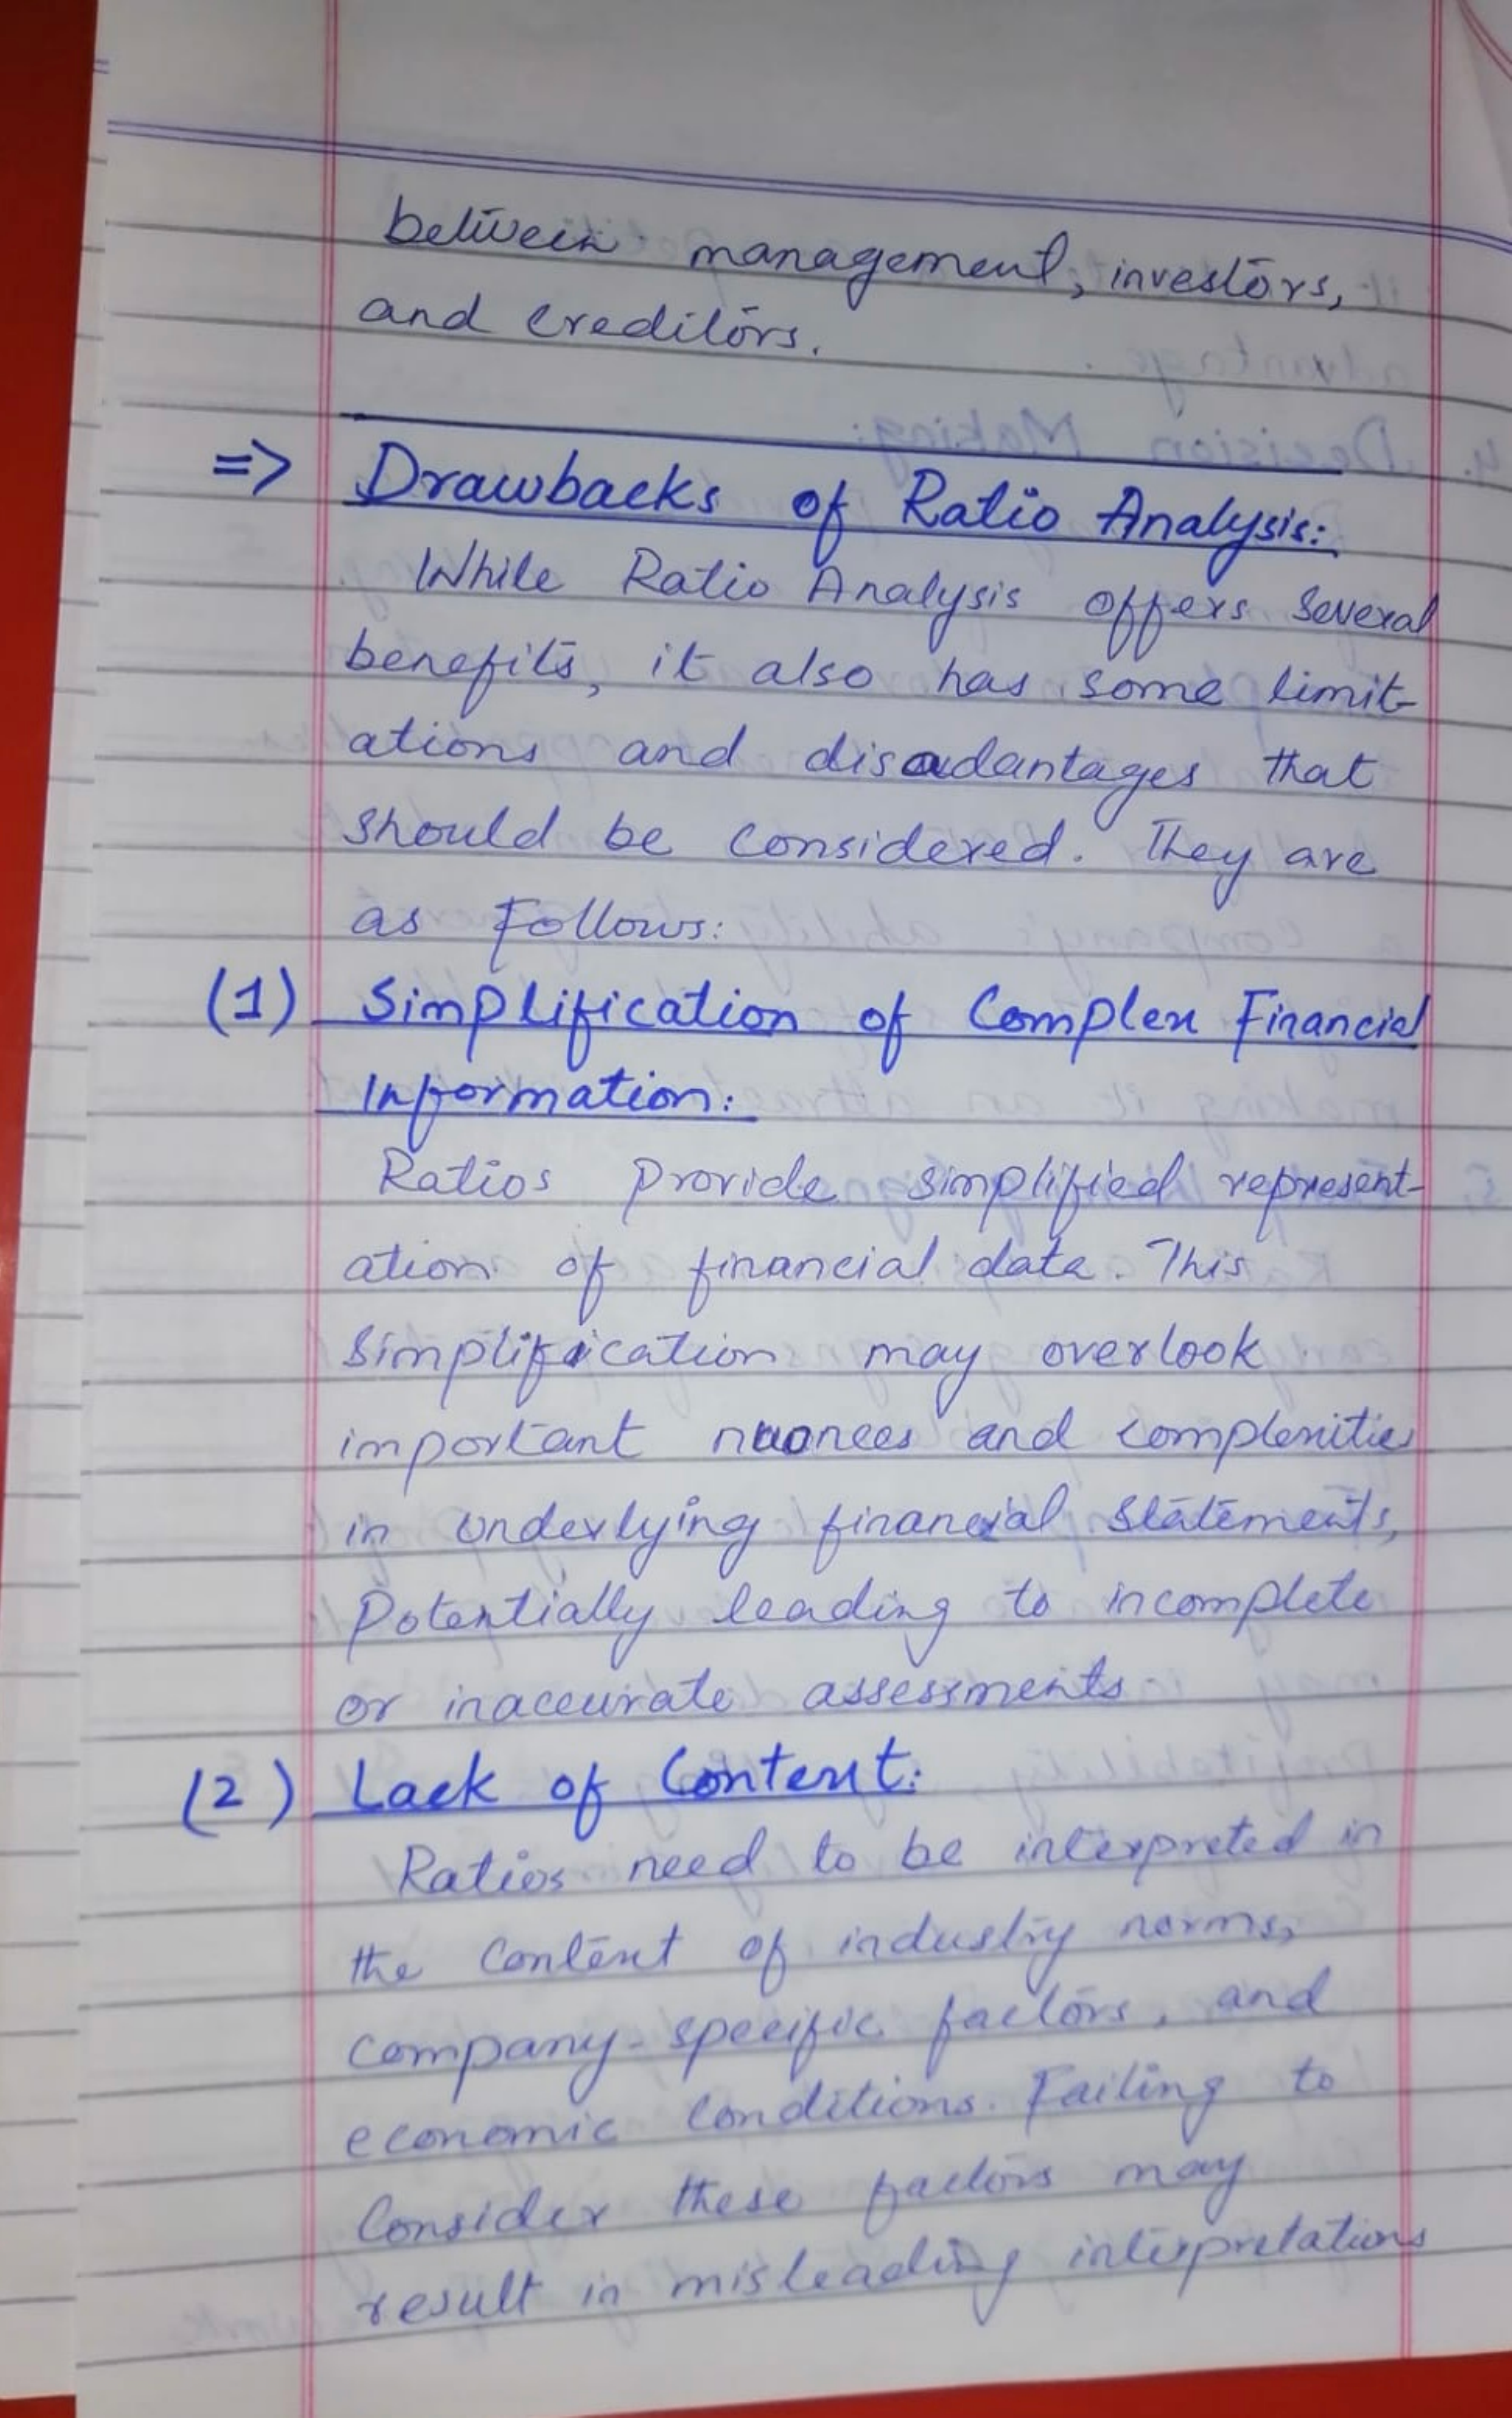 between management, investors,
and creditors.
=> Drawbacks of Ratio Analysis:
While Ratio Analysis offers several
benefits, it also has some limit-
ations and disadantages that
should be considered. They are
as follows:
(1) Simplification of Complex Financial
Information:
Ratios provide simplified represent-
ation of financial data. This
simplification may overlook
important nuances and complexities
in underlying financial statements,
Potentially leading to incomplete
or inaccurate assessments.
(2) Lack of Context:
Ratios need to be interpreted in
the context of industry norms,
company-specific factors, and
economic conditions. Failing to
Consider these factors may
result in misleading interpretations